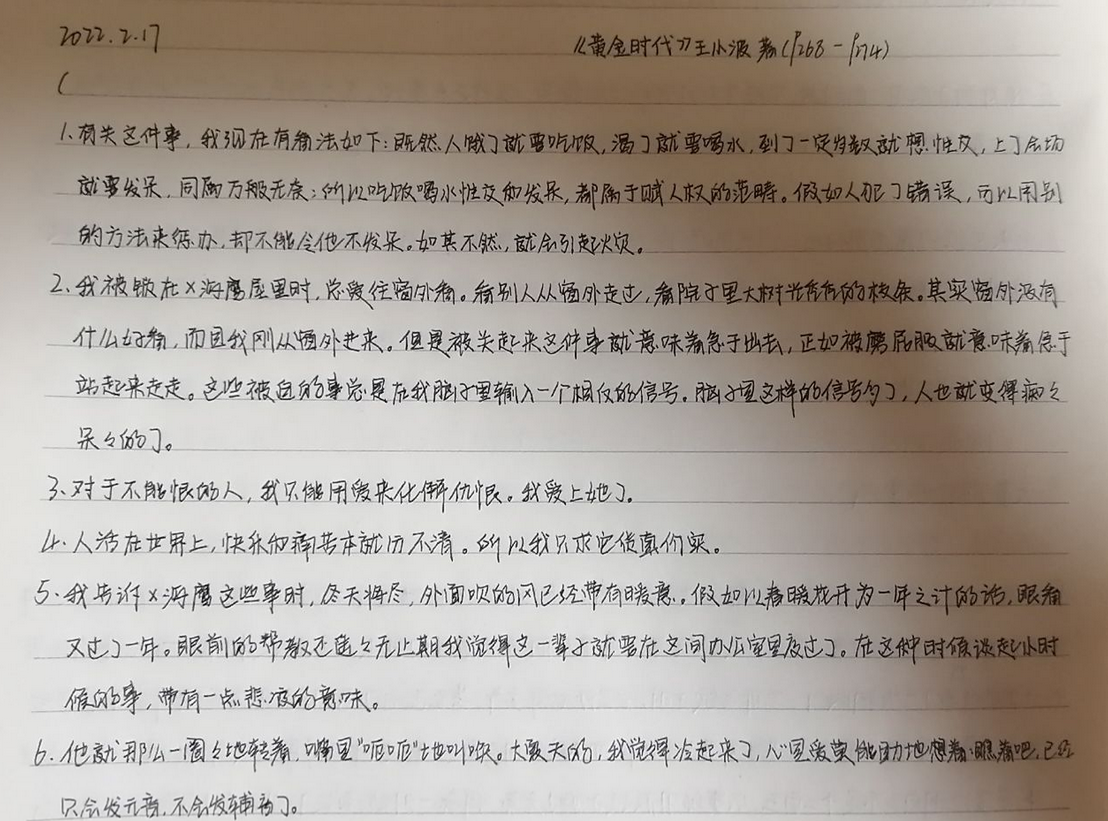 2022.2.17
《黄金时代》王小波 著(P268-P274)
(
1. 有关这件事，我现在有看法如下：既然人饿了就要吃饭，渴了就要喝水，到了一定岁数就想性交，上了会场
就要发呆，同属万般无奈；所以吃饭喝水性交和发呆，都属于赋人权的范畴。假如人犯了错误，可以用别
的方法来惩办，却不能令他不发呆。如其不然，就会引起火灾。
2. 我被锁在×海鹰屋里时，总爱往窗外看。看别人从窗外走过，看院子里大树光秃秃的枝条。其实窗外没有
什么好看，而且我刚从窗外进来。但是被关起来这件事就意味着急于出去，正如被磨屁股就意味着急于
站起来走走。这些被迫的事总是在我脑子里输入一个相反的信号。脑子里这样的信号多了，人也就变得痴々
呆々的了。
3. 对于不能恨的人，我只能用爱来化解仇恨。我爱上她了。
4. 人活在世界上，快乐和痛苦本就分不清。所以我只求它货真价实。
5. 我告诉×海鹰这些事时，冬天将尽，外面吹的风已经带有暖意。假如以春暖花开为一年之计的话，眼看
又过了一年。眼前的帮教还遥々无止期我觉得这一辈子就要在这间办公室里度过了。在这种时候谈起小时
候的事，带有一点悲凉的意味。
6. 他就那么一圈々地转着，嘴里"呃呃"地叫唤。大夏天的，我觉得冷起来了，心里爱莫能助地想着：瞧着吧，已经
只会发元音，不会发辅音了。